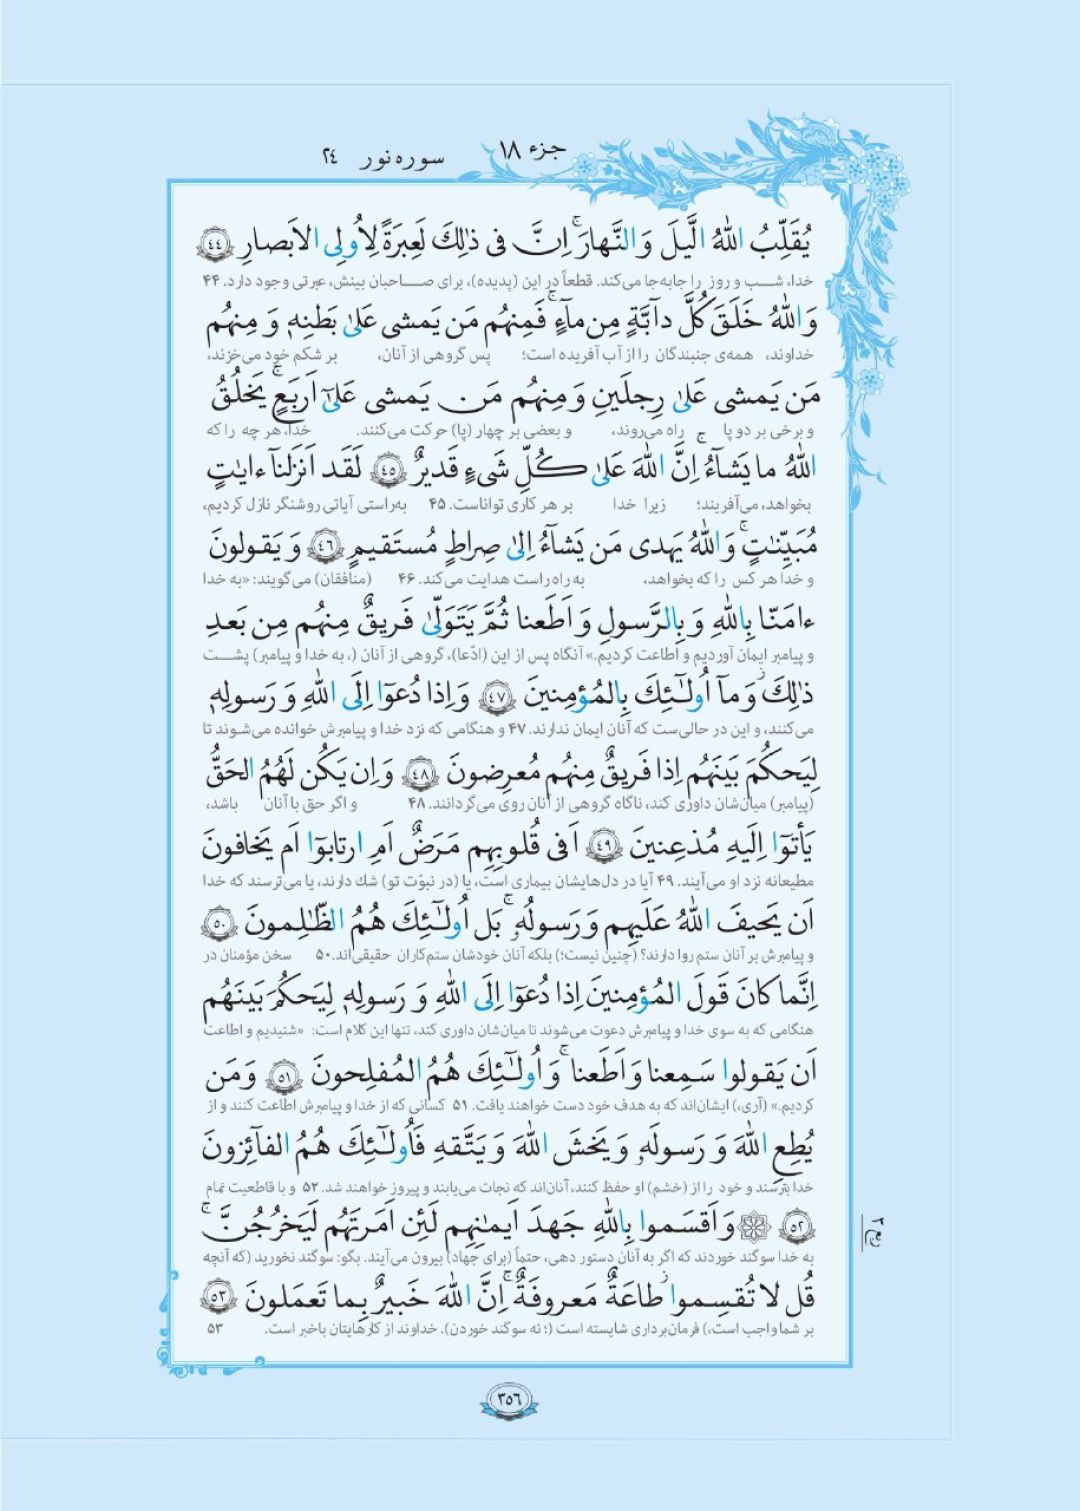 جزء ١٨
سوره نور ٢٤
يُقَلِّبُ اللهُ الَّيلَ وَ النَّهارَ ۚ اِنَّ فى ذٰلِكَ لَعِبرَةً لِاُولِى الاَبصارِ ﴿٤٤﴾
خدا، شب و روز را جابه‌جا می‌کند. قطعاً در این (پدیده)، برای صاحبان بینش، عبرتی وجود دارد. ۴۴
وَ اللهُ خَلَقَ كُلَّ دآبَّةٍ مِن مآءٍ ۚ فَمِنهُم مَن يَمشى عَلىٰ بَطنِهٖ وَ مِنهُم
خداوند، همه‌ی جنبندگان را از آب آفریده است؛ پس گروهی از آنان، بر شکم خود می‌خزند،
مَن يَمشى عَلىٰ رِجلَينِ وَ مِنهُم مَن يَمشى عَلىٰٓ اَربَعٍ ۚ يَخلُقُ
و برخی بر دو پا راه می‌روند، و بعضی بر چهار (پا) حرکت می‌کنند. خدا، هر چه را که
اللهُ ما يَشآءُ ۚ اِنَّ اللهَ عَلىٰ كُلِّ شَىءٍ قَديرٌ ﴿٤٥﴾ لَقَد اَنزَلنآ ءايٰتٍ
بخواهد، می‌آفریند؛ زیرا خدا بر هر کاری تواناست. ۴۵ به‌راستی آیاتی روشنگر نازل کردیم،
مُبَيِّنٰتٍ ۚ وَ اللهُ يَهدى مَن يَشآءُ اِلىٰ صِراطٍ مُستَقيمٍ ﴿٤٦﴾ وَ يَقولونَ
و خدا هر کس را که بخواهد، به راه راست هدایت می‌کند. ۴۶ (منافقان) می‌گویند: «به خدا
ءامَنّا بِاللهِ وَ بِالرَّسولِ وَ اَطَعنا ثُمَّ يَتَوَلّىٰ فَريقٌ مِنهُم مِن بَعدِ
و پیامبر ایمان آوردیم و اطاعت کردیم.» آنگاه پس از این (ادّعا)، گروهی از آنان (، به خدا و پیامبر) پشت
ذٰلِكَ ۚ وَ مآ اُولٰٓئِكَ بِالمُؤمِنينَ ﴿٤٧﴾ وَ اِذا دُعوٓا اِلَى اللهِ وَ رَسولِهٖ
می‌کنند، و این در حالی‌ست که آنان ایمان ندارند. ۴۷ و هنگامی که نزد خدا و پیامبرش خوانده می‌شوند تا
لِيَحكُمَ بَينَهُم اِذا فَريقٌ مِنهُم مُعرِضونَ ﴿٤٨﴾ وَ اِن يَكُن لَهُمُ الحَقُّ
(پیامبر) میان‌شان داوری کند، ناگاه گروهی از آنان روی می‌گردانند. ۴۸ و اگر حق با آنان باشد،
يَأتوٓا اِلَيهِ مُذعِنينَ ﴿٤٩﴾ اَفى قُلوبِهِم مَرَضٌ اَمِ ارتابوٓا اَم يَخافونَ
مطیعانه نزد او می‌آیند. ۴۹ آیا در دل‌هایشان بیماری است، یا (در نبوّت تو) شك دارند، یا می‌ترسند که خدا
اَن يَحيفَ اللهُ عَلَيهِم وَ رَسولُهٗ ۚ بَل اُولٰٓئِكَ هُمُ الظّٰلِمونَ ﴿٥٠﴾
و پیامبرش بر آنان ستم روا دارند؟ (چنین نیست؛) بلکه آنان خودشان ستم‌کاران حقیقی‌اند. ۵۰ سخن مؤمنان در
اِنَّما كانَ قَولَ المُؤمِنينَ اِذا دُعوٓا اِلَى اللهِ وَ رَسولِهٖ لِيَحكُمَ بَينَهُم
هنگامی که به سوی خدا و پیامبرش دعوت می‌شوند تا میان‌شان داوری کند، تنها این کلام است: «شنیدیم و اطاعت
اَن يَقولوا سَمِعنا وَ اَطَعنا ۚ وَ اُولٰٓئِكَ هُمُ المُفلِحونَ ﴿٥١﴾ وَ مَن
کردیم.» (آری،) ایشان‌اند که به هدف خود دست خواهند یافت. ۵۱ کسانی که از خدا و پیامبرش اطاعت کنند و از
يُطِعِ اللهَ وَ رَسولَهٗ وَ يَخشَ اللهَ وَ يَتَّقهِ فَاُولٰٓئِكَ هُمُ الفآئِزونَ
خدا بترسند و خود را از (خشم) او حفظ کنند، آنان‌اند که نجات می‌یابند و پیروز خواهند شد. ۵۲ و با قاطعیت تمام
﴿٥٢﴾ ۞ وَ اَقسَموا بِاللهِ جَهدَ اَيمٰنِهِم لَئِن اَمَرتَهُم لَيَخرُجُنَّ ۚ
به خدا سوگند خوردند که اگر به آنان دستور دهی، حتماً (برای جهاد) بیرون می‌آیند. بگو: سوگند نخورید (که آنچه
قُل لا تُقسِموا ۖ طاعَةٌ مَعروفَةٌ ۚ اِنَّ اللهَ خَبيرٌ بِما تَعمَلونَ ﴿٥٣﴾
بر شما واجب است،) فرمان‌برداری شایسته است (؛ نه سوگند خوردن). خداوند از کارهایتان باخبر است. ۵۳
ربع ٣
٣٥٦